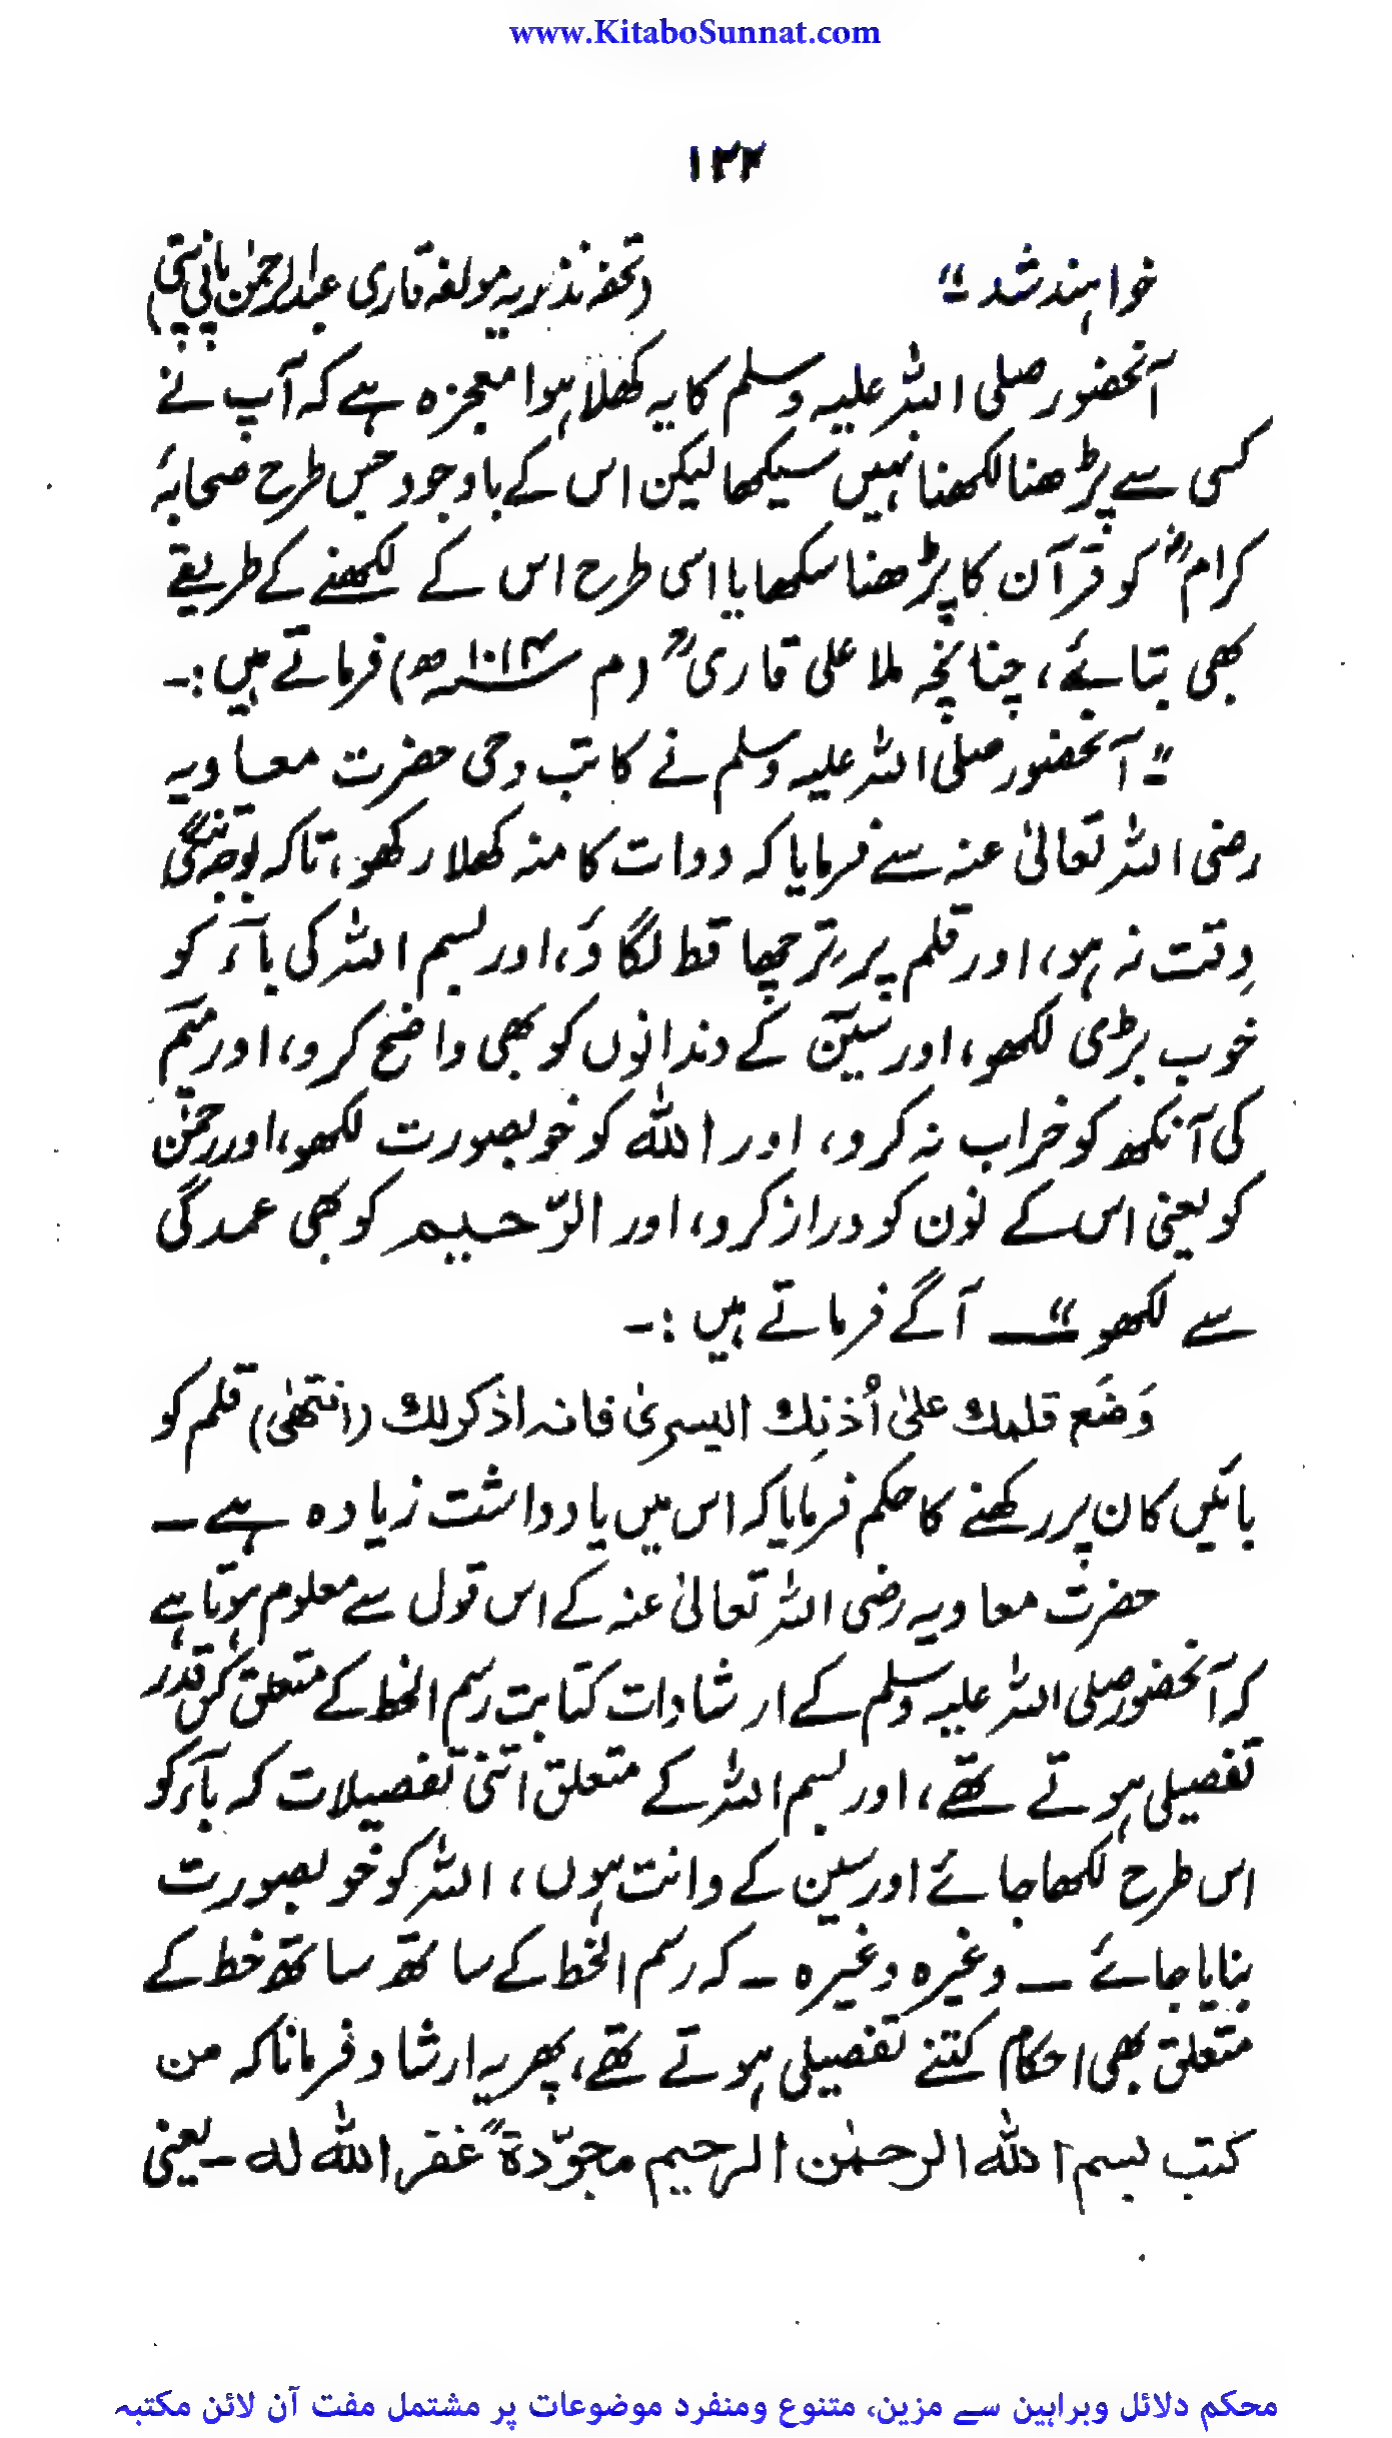 www.KitaboSunnat.com
۱۳۲
خواہند شد ۔" (تحفہ نذیریہ مولفہ قاری عبدالرحمٰن پانی پتی)
آنحضور صلی اللہ علیہ وسلم کا یہ کھلا ہوا معجزہ ہے کہ آپ نے
کسی سے پڑھنا لکھنا نہیں سیکھا لیکن اس کے باوجود جس طرح صحابۂ
کرامؓ کو قرآن کا پڑھنا سکھایا اسی طرح اس کے لکھنے کے طریقے
بھی بتائے، چنانچہ ملا علی قاریؒ (م ۱۰۱۴ھ) فرماتے ہیں :۔
"آنحضور صلی اللہ علیہ وسلم نے کاتب وحی حضرت معاویہ
رضی اللہ تعالیٰ عنہ سے فرمایا کہ دوات کا منہ کھلا رکھو، تاکہ بوجہ تنگی
دِقت نہ ہو، اور قلم پر ترچھا قط لگاؤ، اور بسم اللہ کی بآء کو
خوب بڑی لکھو، اور سین کے دندانوں کو بھی واضح کرو، اور میم
کی آنکھ کو خراب نہ کرو، اور اللہ کو خوبصورت لکھو، اور رحمٰن
کو یعنی اس کے نون کو دراز کرو، اور الرّحیم کو بھی عمدگی
سے لکھو" ــــ آگے فرماتے ہیں :۔
وَضَع قلمك علیٰ اُذنِك الیسریٰ فانہ اذکر لك (انتھیٰ) قلم کو
بائیں کان پر رکھنے کا حکم فرمایا کہ اس میں یادداشت زیادہ ہے ۔
حضرت معاویہ رضی اللہ تعالیٰ عنہ کے اس قول سے معلوم ہوتا ہے
کہ آنحضور صلی اللہ علیہ وسلم کے ارشادات کتابت رسم الخط کے متعلق کس قدر
تفصیلی ہوتے تھے، اور بسم اللہ کے متعلق اتنی تفصیلات کہ بآء کو
اس طرح لکھا جائے اور سین کے دانت ہوں، اللہ کو خوبصورت
بنایا جائے ــ وغیرہ وغیرہ ــ کہ رسم الخط کے ساتھ ساتھ خط کے
متعلق بھی احکام کتنے تفصیلی ہوتے تھے، پھر یہ ارشاد فرمانا کہ من
کتب بسم اللہ الرحمٰن الرحیم مجوّدةً غفر اللہ له ــ یعنی
محکم دلائل وبراہین سے مزین، متنوع ومنفرد موضوعات پر مشتمل مفت آن لائن مکتبہ